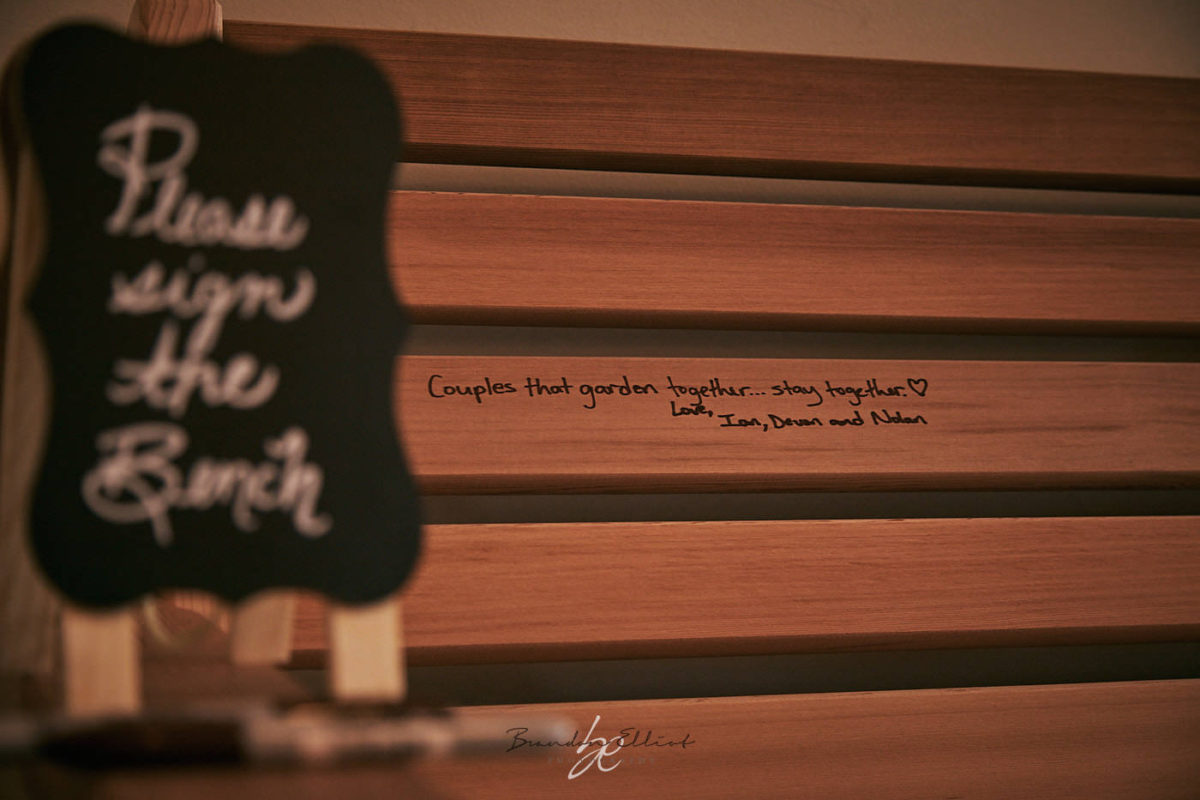 Please
sign
the
Bench
Couples that garden together... stay together.♡
Love,
Ian, Devan and Nolan
Brandon Elliot